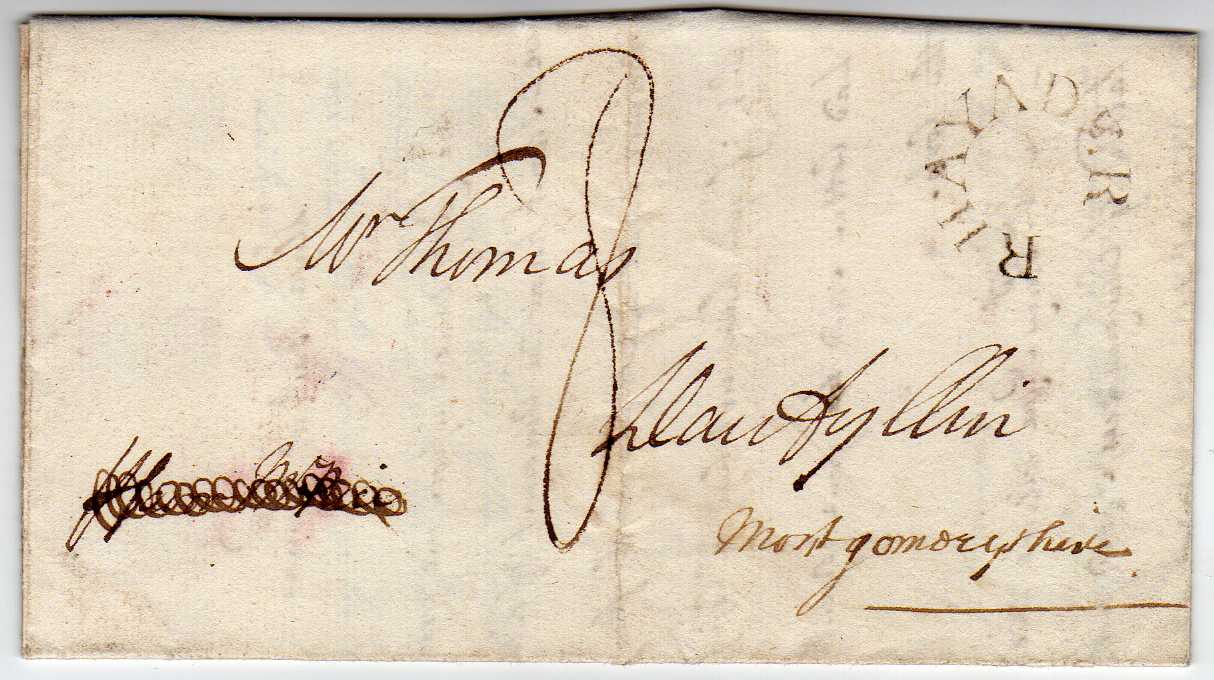 RHAYADER
8
Mr Thomas
Llanfyllin
Montgomeryshire